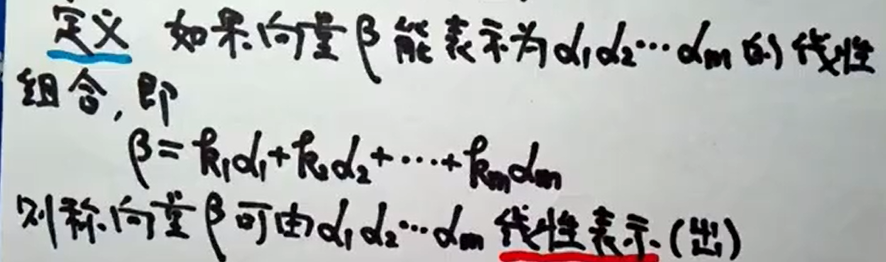 定义 如果向量β能表示为α₁α₂…αₘ的线性
组合,即
β=k₁α₁+k₂α₂+…+kₘαₘ
则称向量β可由α₁α₂…αₘ线性表示(出)